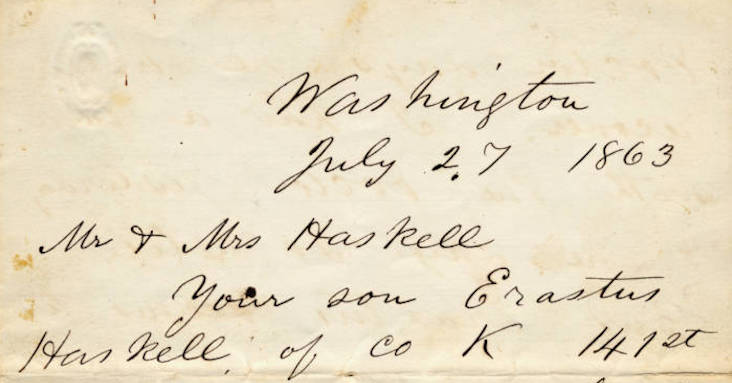 Washington
July 27 1863
Mr & Mrs Haskell
Your son Erastus
Haskell, of co K 141st